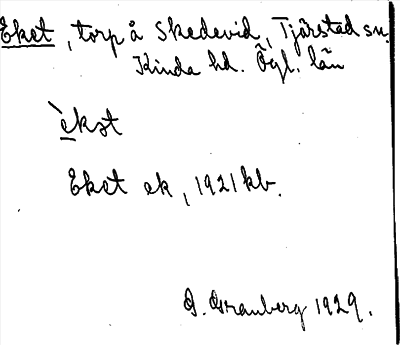 Eket, torp å Skedevid, Tjärstad sn.
Kinda hd. Ögl. län
Eket ek, 1921 kb.
G. Granberg 1929.